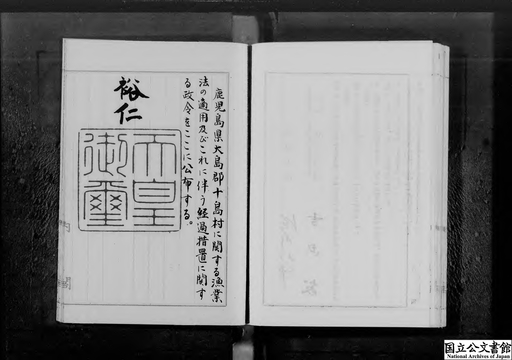 鹿児島県大島郡十島村に関する漁業
法の適用及びこれに伴う経過措置に関す
る政令をここに公布する。
裕仁
天皇
御璽
国立公文書館
National Archives of Japan